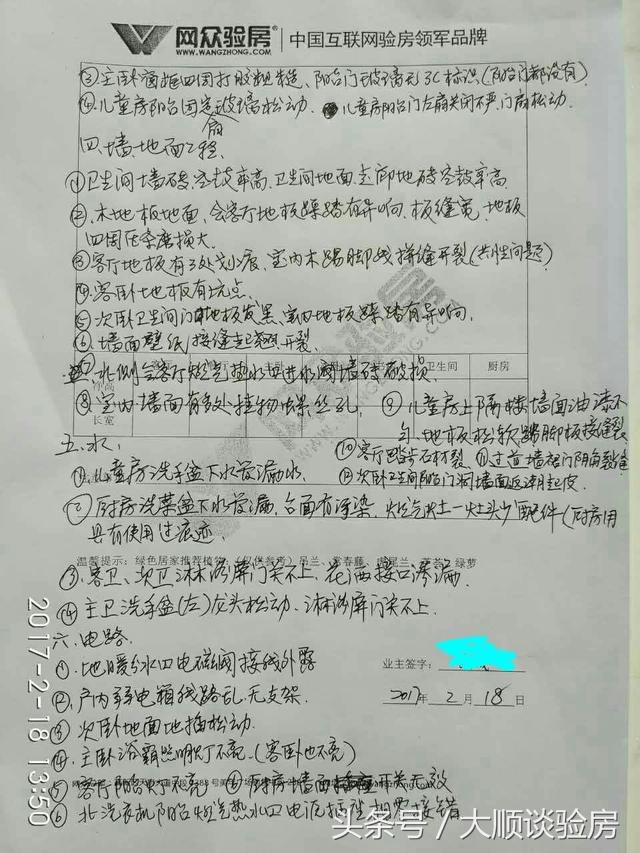 网众验房
WWW.WANGZHONG.COM
中国互联网验房领军品牌
③主卧窗框四周打胶粗糙、阳台门玻璃无3C标识(阳台门都没有)
④儿童房阳台固定扇玻璃松动. 儿童房阳台门左扇关闭不严,门扇松动.
四、墙、地面工程
①卫生间墙砖,空鼓率高,卫生间地面、走廊地砖空鼓率高
②木地板地面,会客厅地板踩踏有异响、板缝宽、地板
四周压条磨损大.
③客厅地板有3处划痕、室内木踢脚线拼缝开裂(共性问题)
④客卧地板有坑点
⑤次卧卫生间门口地板发黑、室内地板踩踏有异响.
⑥墙面壁纸接缝开裂
卫生间 厨房
⑦北侧会客厅燃气热水口进水阀墙砖破损.
⑧室内墙面有多处挂物螺丝孔.
⑨儿童房上隔楼墙面油漆不
匀、地板松软踢脚板接缝裂
长宽
五、水.
⑩客厅踏步石材裂.
①儿童房洗手盆下水管漏水.
⑫次卧卫生间阳台门洞墙面返潮起皮
②厨房洗菜盆下水管漏,台面有污染,燃气灶一灶头少配件(厨房用
具有使用过痕迹.
温馨提示:绿色居家推荐植物:(仅供参考)吊兰、常春藤、虎尾兰、芦荟、绿萝
③客卫、次卫淋浴屏门关不上,花洒接口渗漏
④主卫洗手盆(左)龙头松动、淋浴屏门关不上.
六、电路
①地暖分水口电磁阀接线外露
业主签字:
②户内弱电箱线路乱,无支架.
2017年2月18日
③次卧地面地插松动.
④主卧浴霸照明灯不亮.(客卧也不亮)
⑤客厅阳台灯不亮 ⑥厨房墙面开关无效
⑥北洗衣机阳台燃气热水口电源插座相零接错
2017-2-18 13:50
头条号/大顺谈验房